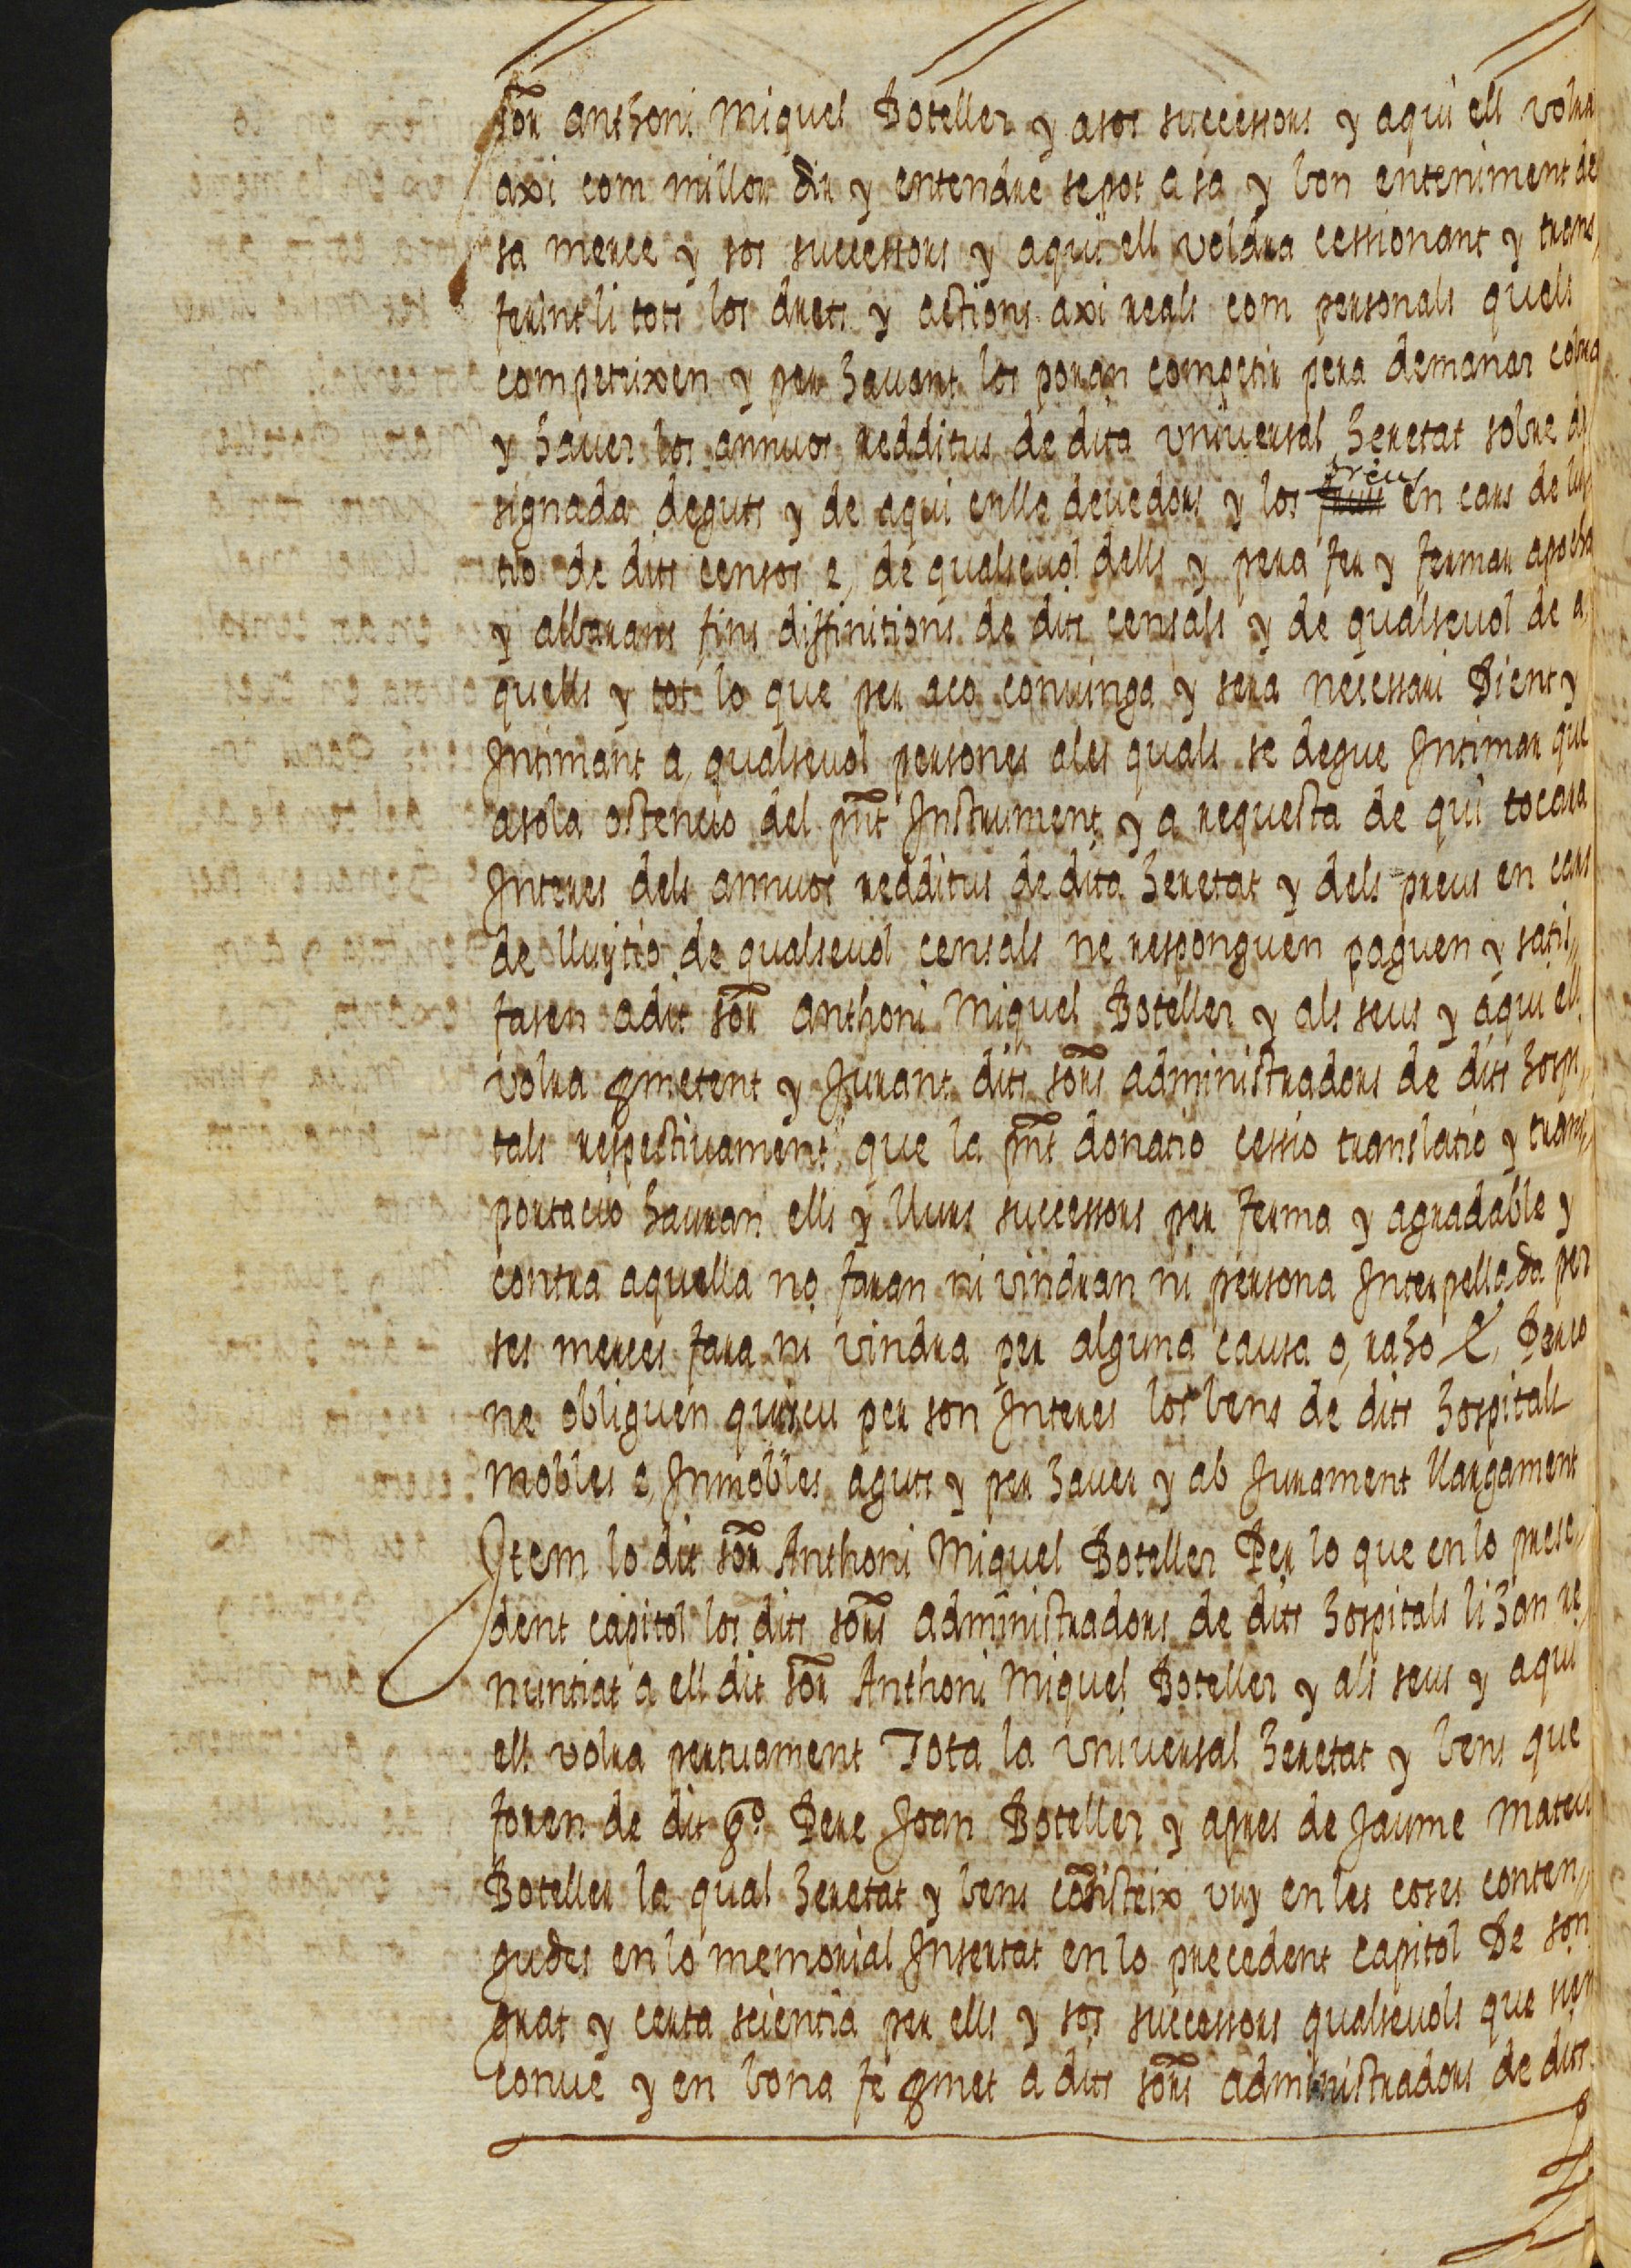 sor anthoni Miquel Boteller y a sos successors y a qui ell volra
axi com millor dir y entendre se pot a sa y bon enteniment de
sa merce y sos successors y a qui ell voldra cessionant y trans,
ferint li tots los drets y actions axi reals com personals quels
competeixen y per hauant los poran competir pera demanar cobra
y hauer los annuos redditus de dita vniuersal heretat sobre de
signada deguts y de aqui enlla deuedors y los preus en cars de luy
tio de dits censos e, de qualseuol dells y pera fer y fermar apocha
y albarans fins diffinitions de dits censals y de qualseuol de a,
quells y tot lo que per aco conuinga y sera necessari Dient y
Intimant a, qualseuol persones ales quals se degue Intimar que
asola ostencio del pnt Instrument y a requesta de qui tocara
Interes dels annuos redditus de dita heretat y dels preus en cars
de lluytio de qualseuol censals ne responguen paguen y satis,,
fasen adit sor anthoni Miquel Boteller y als seus y aqui ell
volra pmetent y Jurant dits sors administradors de dits hospi,,
tals respectiuament que la pnt donatio cessio translatio y trans,,
portacio hauran ells y llurs successors per ferma y agradable y
contra aquella no faran ni vindran ni persona Interpellada per
ses merces fara ni vindra per alguna causa o, raho &, Perco
ne obliguen quiscu per son Interes los bens de dits hospitals
mobles e, Inmobles aguts y per hauer y ab Jurament llargament
Item lo dit sor Anthoni Miquel Boteller Per lo que en lo prese,,
dent capitol los dits sors administradors de dits hospitals li han re,
nuntiat a ell dit sor Anthoni Miquel Boteller y als seus y aqui
ell volra pertuament Tota la vniuersal heretat y bens que
foren de dit qo. Pere Joan Boteller y apres de Jaume Mateu
Boteller la qual heretat y bens cosisteix vuy en les coses conten,,
gudes en lo memorial Insertat en lo precedent capitol De son
grat y certa scientia per ells y sos successors qualseuols que sien
conue y en bona fe pmet a dits sors administradors de dits